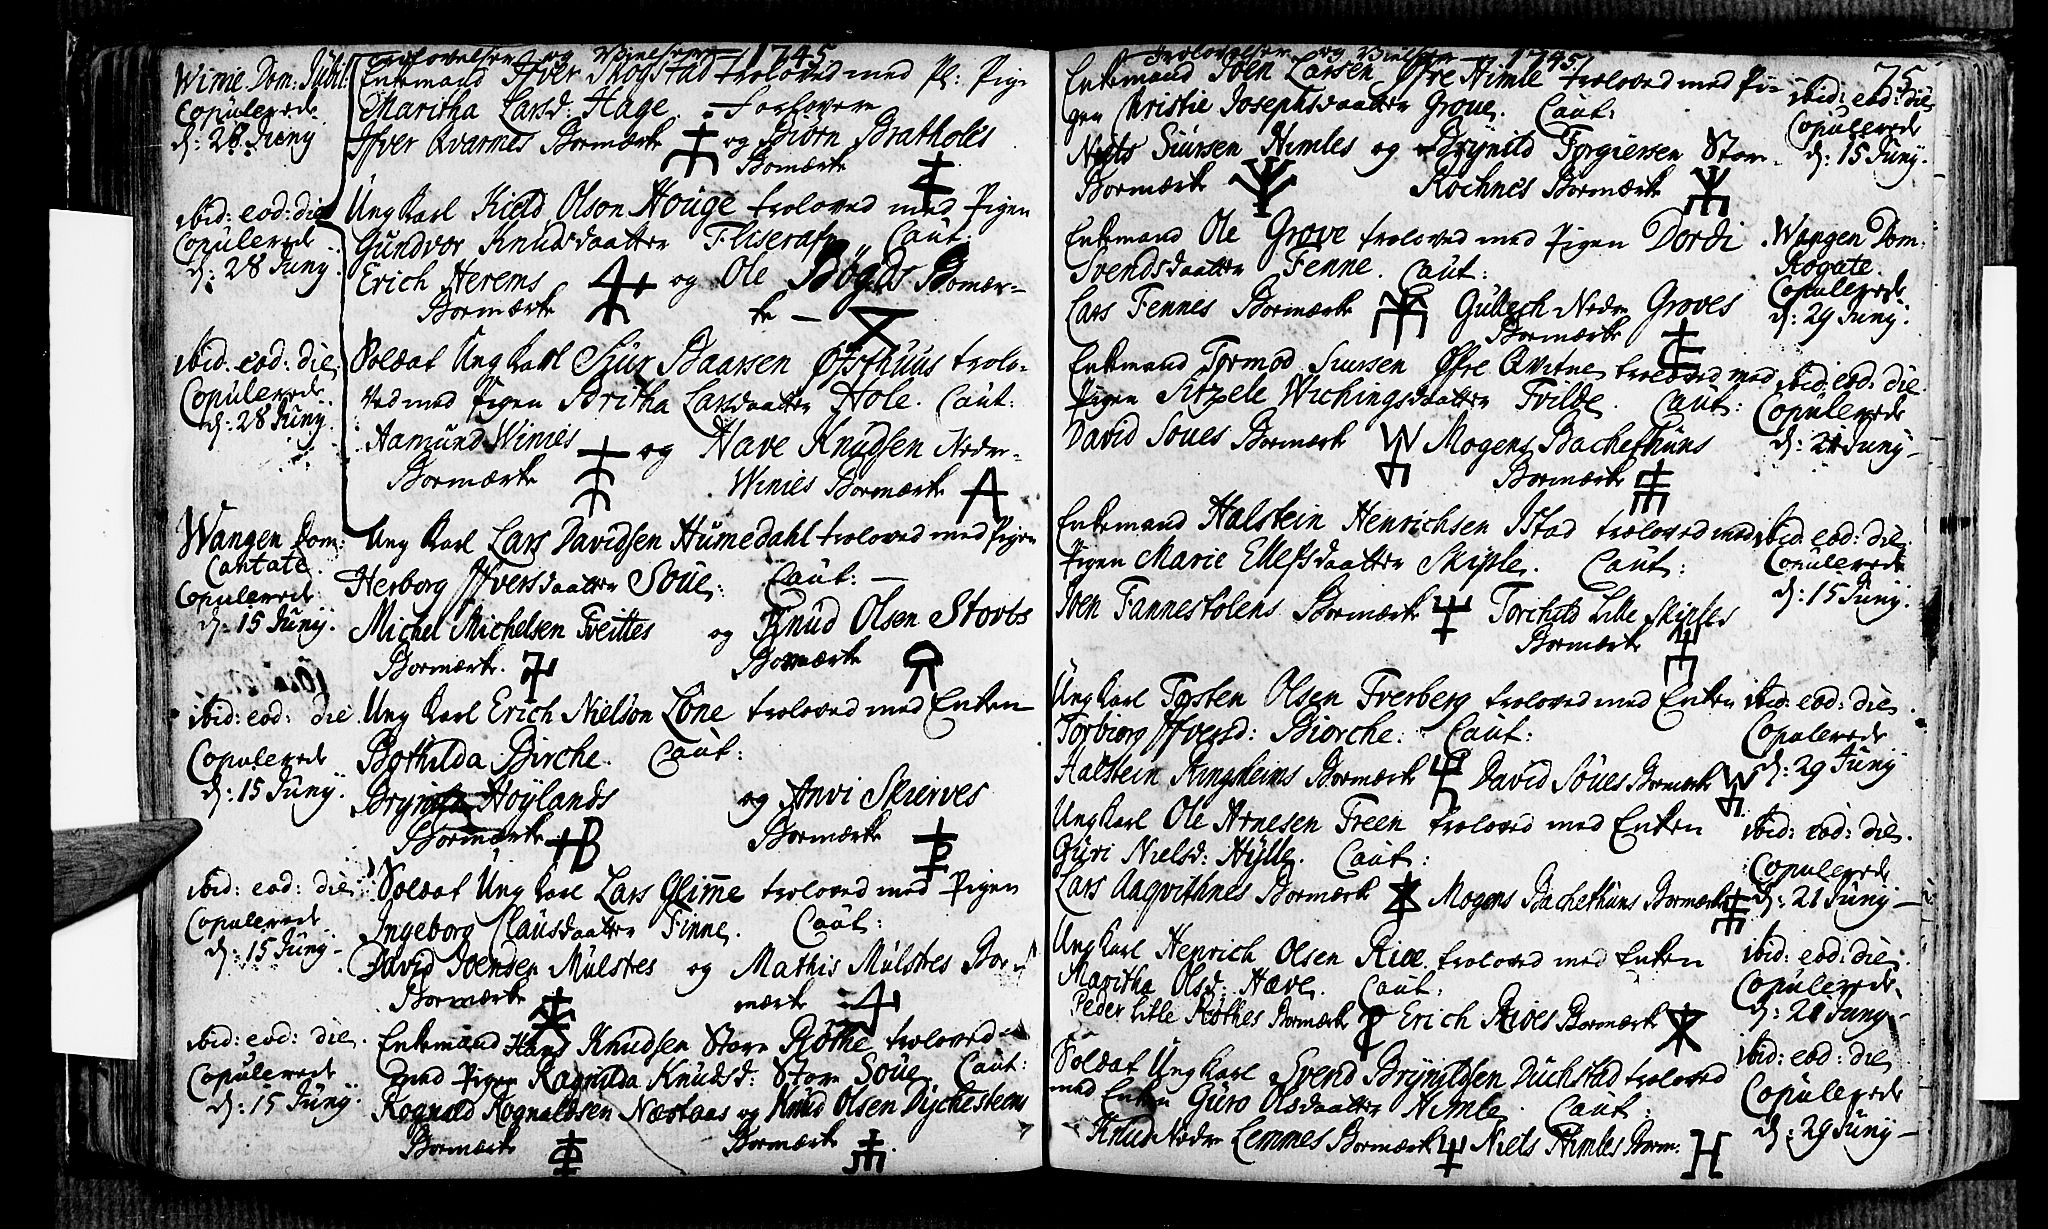 Trolovelser og Vielser 1745
Wimie Dom: Jubil:
Copulerede
d: 28 Juny
Enkemand Ifver Skogstad troloved med Pl: Pige
Maritha Larsd: Hage Forlovere
Ifver Qvarnes Bormærke og Biørn Bratholes
Bomærke
ibid: eod: die
Copulerede
d: 28 Juny
Ung Karl Kield Olson Houge troloved med Pigen
Gundvor Knudsdaatter Caut:
Erich Herems og Ole Bomær-
Bormærke ke
ibid. eod: die
Copulerede
d: 28 Juny
Soldat Ung Karl Siur Baarsen Øfsthuus trolo-
ved med Pigen Britha Larsdaatter Hole. Caut:
Aamund Winies og Nave Knudsen Nedre
Bormærke Winies Bormærke
Wangen Dom:
Cantate.
Copulerede
d: 15 Juny.
Ung Karl Lars Davidsen Humedahl troloved med Pigen
Herborg Ifversdaatter Soue. Caut:
Michel Michelsen Tveittes og Knud Olsen
Bormærke. Bormærke
ibid: eod: die
Copulerede
d: 15 Juny.
Ung Karl Erich Nielson Løne troloved med Enken
Bothilda Birche. Caut:
Høylands og Anvi Skierves
Bormærke +B Bormærke
ibid: eod: die
Copulerede
d: 15 Juny
Soldat Ung Karl Lars Glim̅e troloved med Pigen
Ingeborg Clausdaatter Finne. Caut:
David Ivensen Mølstres og Mathis Mølstres Bor-
Bormærke mærke
ibid: eod: die.
Copulerede
d: 15 Juny.
Enkemand Hans Knudsen Store Røthe troloved
med Pigen Ragnilda Knudsd: Store Soue. Caut:
Rognald Rognaldsen Næstaas og Knud Olsen Dychesteens
Bormærke Bormærke
Trolovelser og Vielser 1745
75
Enkemand Iven Larsen Øfre Himle troloved med Pi-
gen Christie Josephsdaatter Groue. Caut:
Niels Siursen Himles og Brynild Torgiersen Store
Bormærke Bormærke
ibid: eod: die
Copulerede
d: 15 Juny.
Enkemand Ole Grove troloved med Pigen Dordi
Svendsdaatter Fenne. Caut:
Lars Fennes Bormærke Gullech Nedre Groves
Bormærke
Wangen Dom:
Rogate.
Copulerede
d: 29 Juny.
Enkemand Tormod Siursen Øfre Qvitne troloved med
Pigen Sitzele Wichingsdaatter Tvilde. Caut:
David Soues Bormærke Mogens Bachethuns
Bormærke
ibid: eod: die
Copulerede
d: 21 Juny
Enkemand Halstein Henrichsen Istad troloved med
Pigen Marie Ellefsdaatter Skiple. Caut:
Iven Fannestolens Bormærke Torchild Lille Skiples
Bormærke
ibid: eod: die
Copulerede
d: 15 Juny.
Ung Karl Tosten Olsen Tverberg troloved med Enken
Torbiørg Ifversd: Biørche. Caut:
Halstein Ringheims Bormærke David Soues Bormærke
ibid: eod: die.
Copulerede
d: 29 Juny
Ung Karl Ole Arnesen Treen troloved med Enken
Guri Nielsd: Hylle. Caut:
Lars Bormærke Mogens Bachethuns Bormærke
ibid: eod: die.
Copulerede
d: 21 Juny
Ung Karl Henrich Olsen troloved med Enken
Maritha Olsd: Hæve. Caut:
Peder Lille Røthes Bormærke Erich Bormærke
ibid: eod: die.
Copulerede
d: 21 Juny
Soldat Ung Karl Svend Brynildsen Duchstad troloved
med Enken Guro Olsdaatter Himle. Caut:
Knud Nedre Lemmes Bormærke Niels Himles Borm:
ibid: eod: die
Copulerede
d: 29 Juny